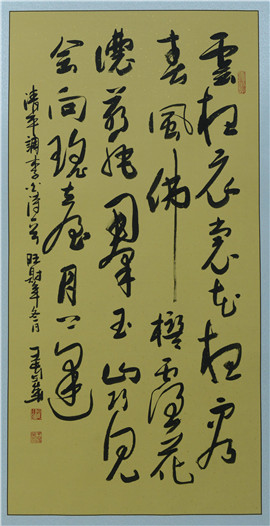 雲想衣裳花想容
春風拂檻露花
濃若非群玉山頭見
会向瑶臺月下逢
清平調李白詩一首 旺財年冬月